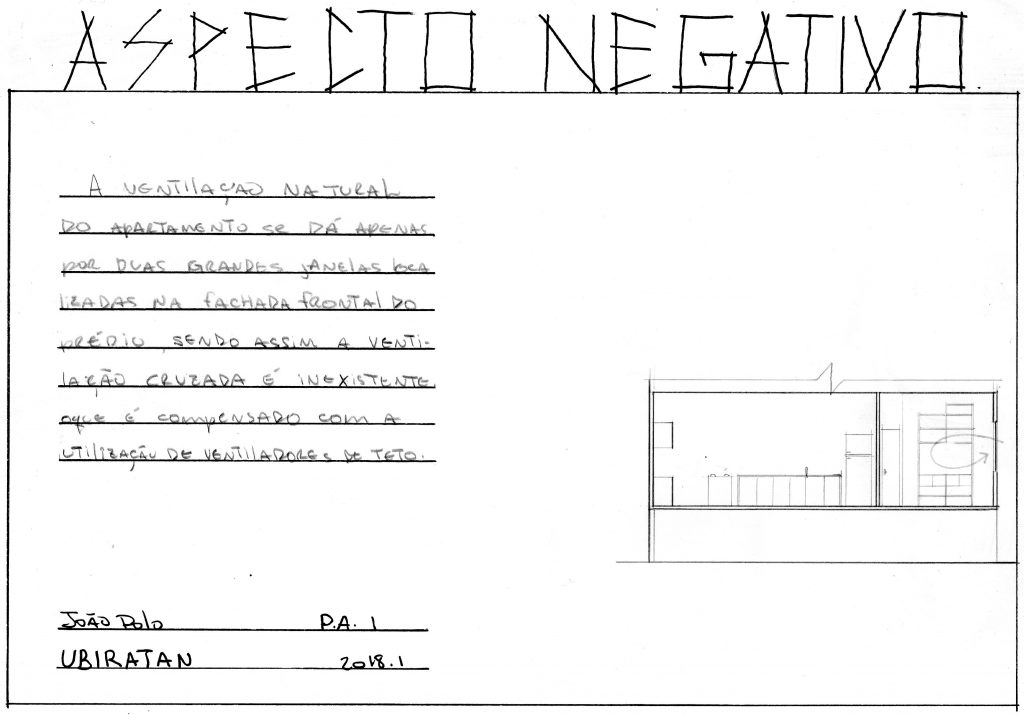 ASPECTO NEGATIVO.
A VENTILAÇAO NATURAL
DO APARTAMENTO SE DÁ APENAS
POR DUAS GRANDES JANELAS LOCA
LIZADAS NA FACHADA FRONTAL DO
PRÉDIO, SENDO ASSIM A VENTI-
LAÇÃO CRUZADA É INEXISTENTE
OQUE É COMPENSADO COM A
UTILIZAÇÃO DE VENTILADORES DE TETO.
JOÃO POLO P.A. 1
UBIRATAN 2018.1